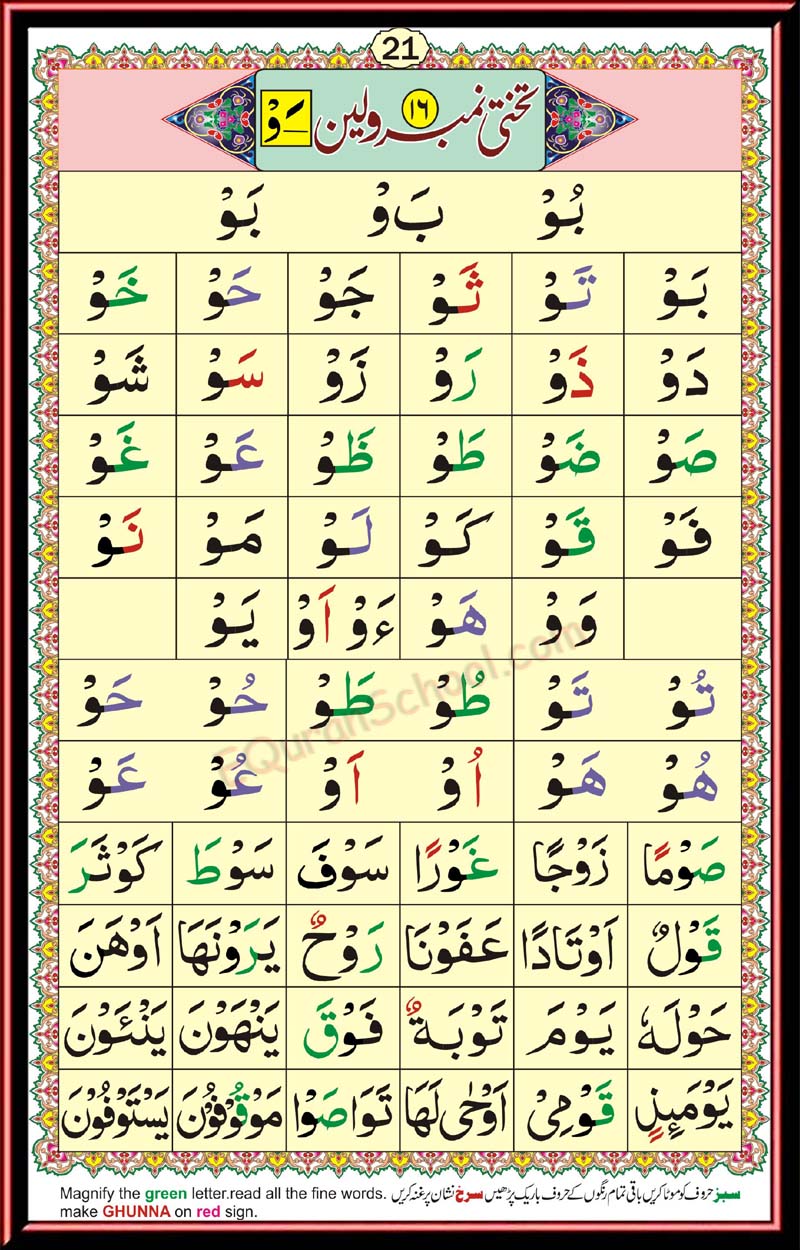 21
تختی نمبر ۱۶ واؤ لین ـَوْ
بُوْ بَ وْ بَوْ
بَوْ تَوْ ثَوْ جَوْ حَوْ خَوْ
دَوْ ذَوْ رَوْ زَوْ سَوْ شَوْ
صَوْ ضَوْ طَوْ ظَوْ عَوْ غَوْ
فَوْ قَوْ كَوْ لَوْ مَوْ نَوْ
وَوْ هَوْ ءَوْ اَوْ يَوْ
تُوْ تَوْ طُوْ طَوْ حُوْ حَوْ
هُوْ هَوْ اُوْ اَوْ عُوْ عَوْ
صَوْمًا زَوْجًا غَوْرًا سَوْفَ سَوْطَ كَوْثَرَ
قَوْلٌ اَوْتَادًا عَفَوْنَا رَوْحٌ يَرَوْنَهَا اَوْهَنَ
حَوْلَهٗ يَوْمَ تَوْبَةٌ فَوْقَ يَنْهَوْنَ يَنْئَوْنَ
يَوْمَئِذٍ قَوْمِيْ اَوْحٰى لَهَا تَوَاصَوْا مَوْقُوْفُوْنَ يَسْتَوْفُوْنَ
EQuranSchool.com
Magnify the green letter.read all the fine words. سبز حروف کو موٹا کریں باقی تمام رنگوں کے حروف باریک پڑھیں سرخ نشان پر غنہ کریں
make GHUNNA on red sign.